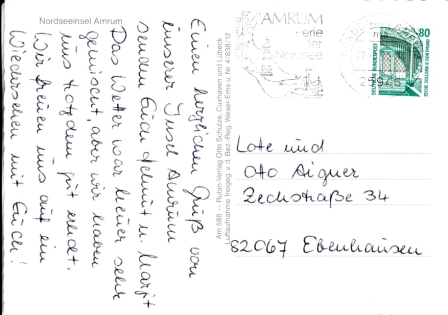 Nordseeinsel Amrum
Einen herzlichen Gruß von
unserer Insel Amrum
senden Euch Helmut u. Margit
Das Wetter war heuer sehr
gemischt, aber wir haben
uns trotzdem gut erholt.
Wir freuen uns auf ein
Wiedersehen mit Euch!
Am 588 — Rubin-Verlag Otto Schulze, Cuxhaven und Lübeck
Luftaufnahme freigeg. v. d. Bez.-Reg. Weser-Ems u. Nr. 4/838/12
AMRUM
80
DEUTSCHE BUNDESPOST
ZECHE ZOLLERN II DORTMUND
Lote und
Otto Aigner
Zechstraße 34
82067 Ebenhausen